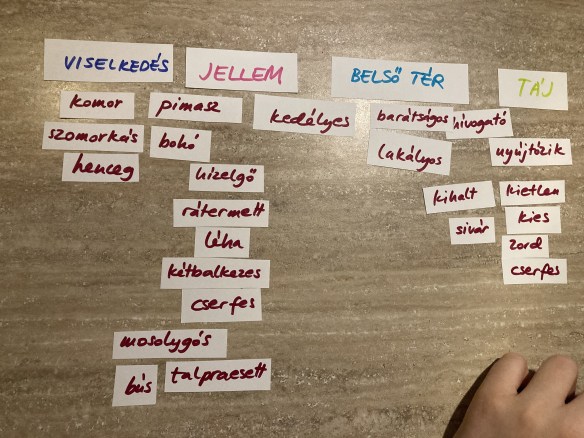 VISELKEDÉS
JELLEM
BELSŐ TÉR
TÁJ
komor
pimasz
kedélyes
barátságos
hívogató
szomorkás
bohó
lakályos
nyújtózik
henceg
hízelgő
kihalt
kietlen
rátermett
sivár
kies
léha
zord
kétbalkezes
cserfes
cserfes
mosolygós
bús
talpraesett